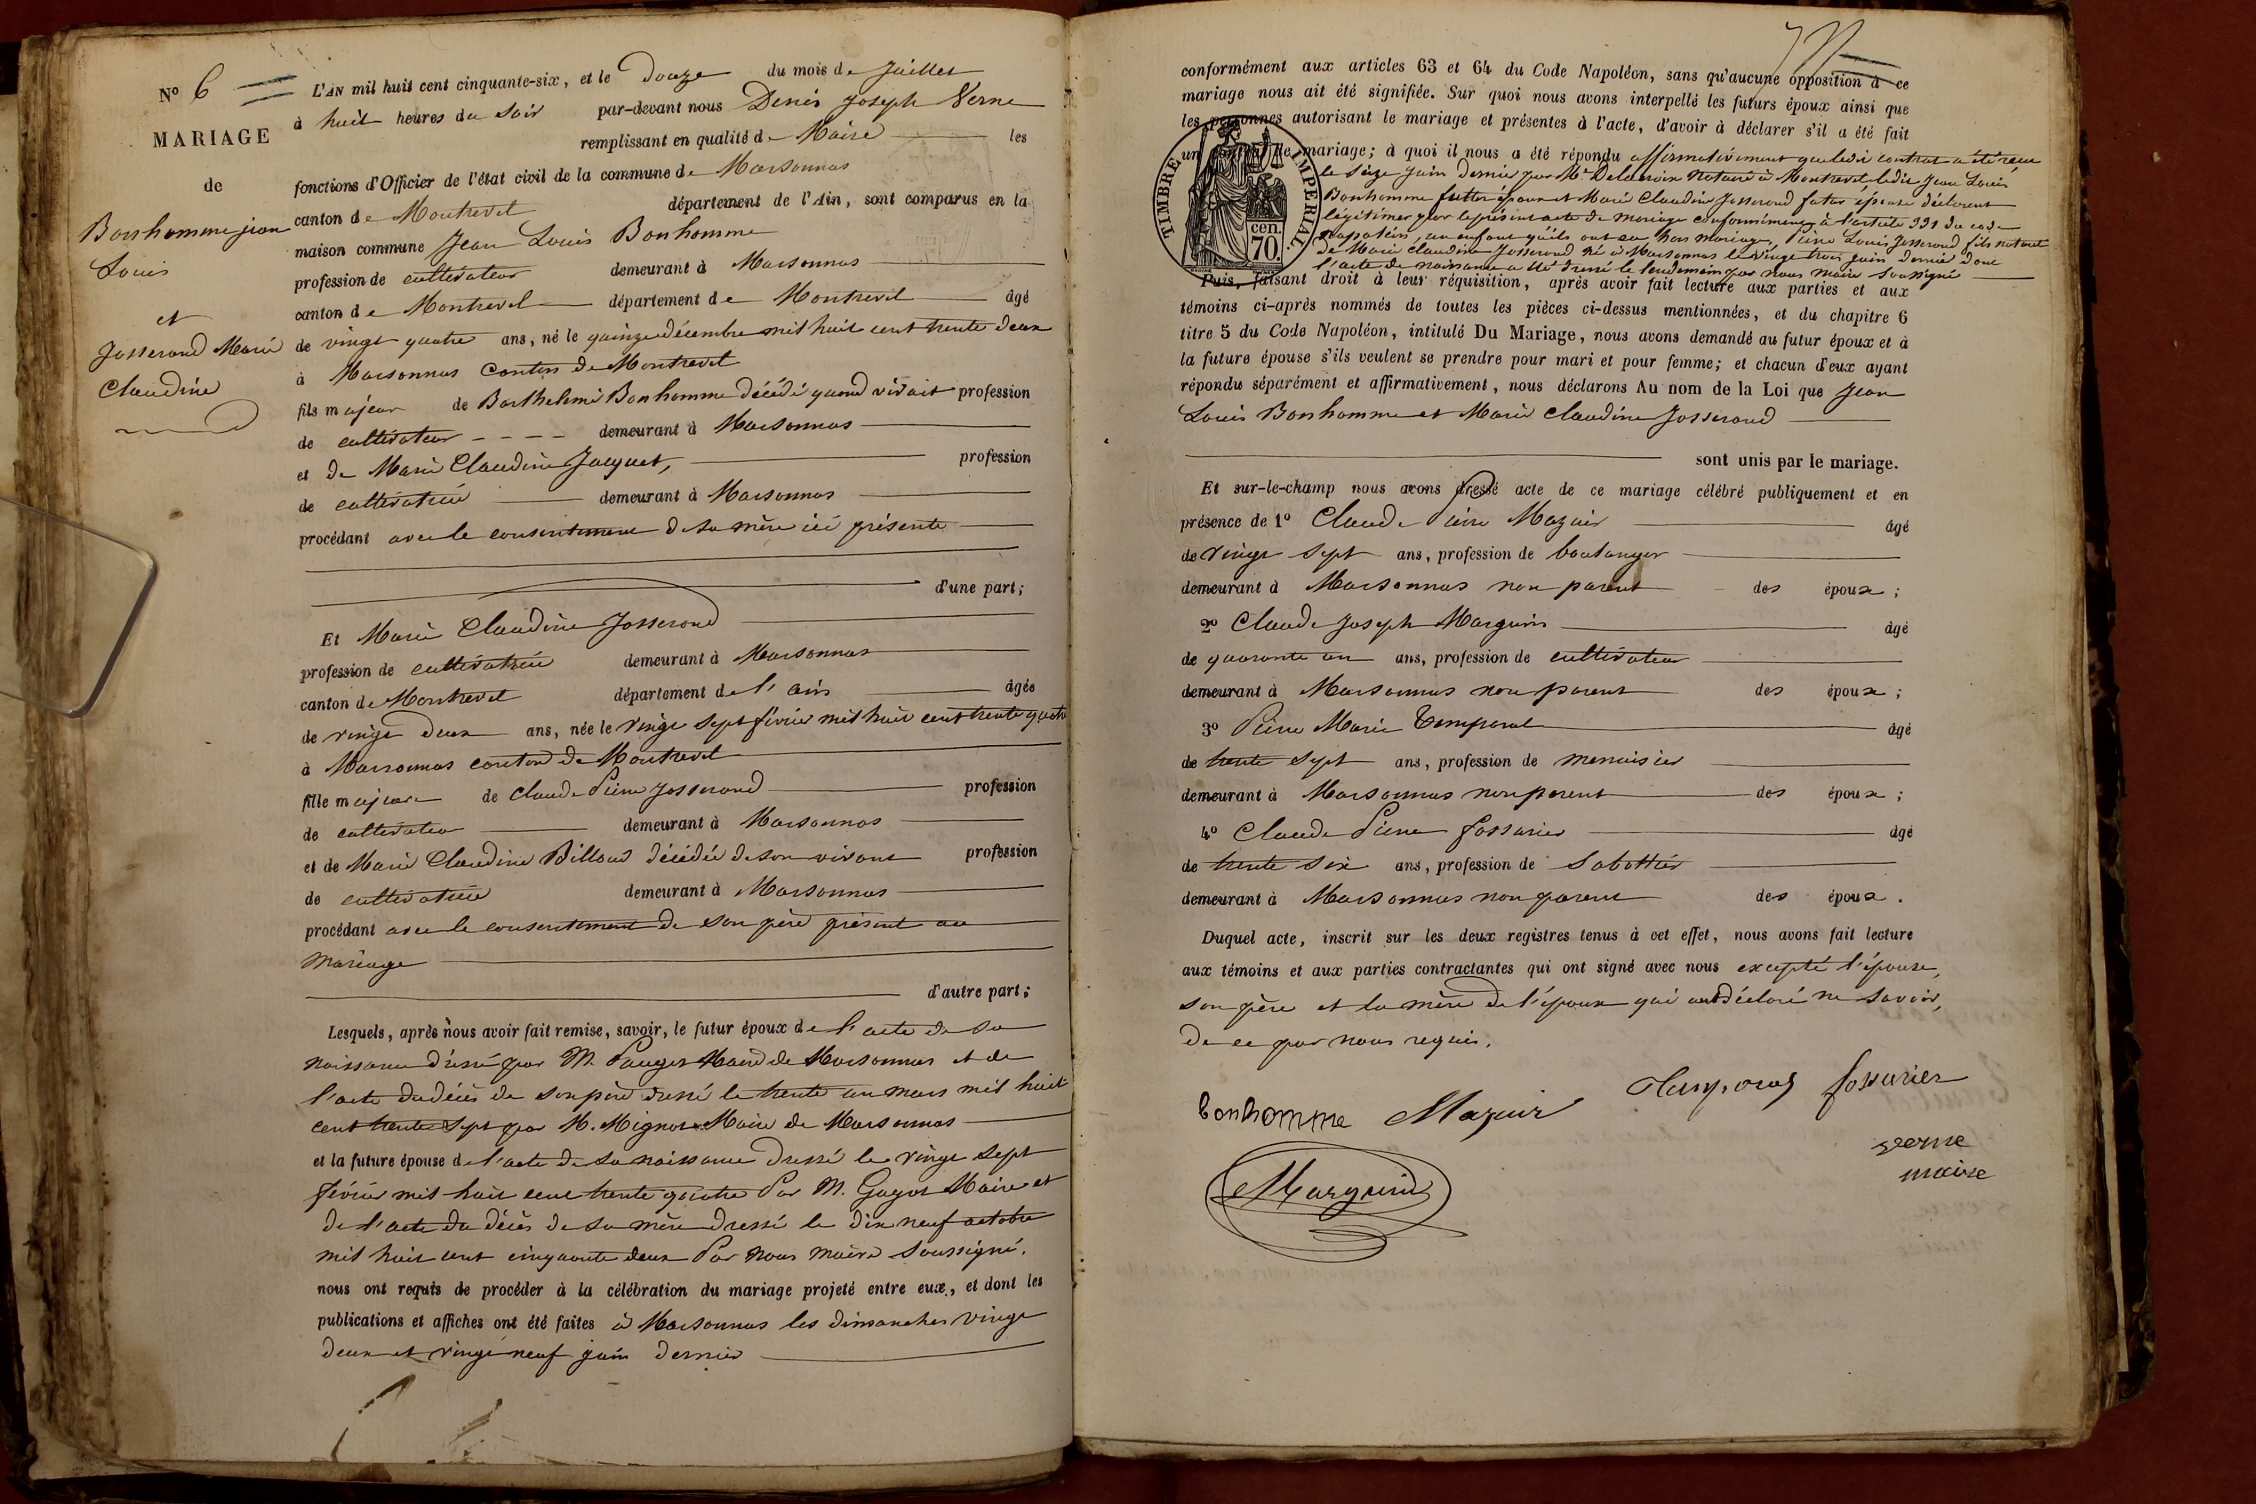 N° 6
MARIAGE
de
Bonhomme jean
Louis
et
Josserand Marie
Claudine
L'AN mil huit cent cinquante-six, et le Douze du mois de Juillet
à huit heures du Soir par-devant nous Denis Joseph Verne
remplissant en qualité de Maire les
fonctions d'Officier de l'état civil de la commune de Marsonnas
canton de Montrevel département de l'Ain, sont comparus en la
maison commune Jean Louis Bonhomme
profession de cultivateur demeurant à Marsonnas
canton de Montrevel département de Montrevel âgé
de vingt quatre ans, né le quinze décembre mil huit cent trente deux
à Marsonnas Canton de Montrevel
fils majeur de Barthelemi Bonhomme décédé quand vivait profession
de cultivateur - - - - demeurant à Marsonnas
et de Marie Claudine Jacquet, profession
de cultivatrice demeurant à Marsonnas
procédant avec le consentement de sa mère ici présente
d'une part;
Et Marie Claudine Josserand
profession de cultivatrice demeurant à Marsonnas
canton de Montrevel département de l'ain âgée
de vingt Deux ans, née le vingt sept février mil huit cent trente quatre
à Marsonnas canton de Montrevel
fille majeure de Claude Pierre Josserand profession
de cultivateur demeurant à Marsonnas
et de Marie Claudine Billoud décédée de son vivant profession
de cultivatrice demeurant à Marsonnas
procédant avec le consentement de son père présent au
mariage
d'autre part;
Lesquels, après nous avoir fait remise, savoir, le futur époux de l'acte de sa
naissance dressé par M. Pauget Maire de Marsonnas et de
l'acte du décès de son père dressé le trente un mars mil huit
cent trente sept par M. Mignot Maire de Marsonnas
et la future épouse de l'acte de sa naissance dressé le vingt sept
février mil huit cent trente quatre Par M. Guyot Maire et
de l'acte du décès de sa mère dressé le dix neuf octobre
mil huit cent cinquante deux Par nous maire soussigné.
nous ont requis de procéder à la célébration du mariage projeté entre eux, et dont les
publications et affiches ont été faites à Marsonnas les dimanches vingt
deux et vingt neuf juin dernier
conformément aux articles 63 et 64 du Code Napoléon, sans qu'aucune opposition à ce
mariage nous ait été signifiée. Sur quoi nous avons interpellé les futurs époux ainsi que
les personnes autorisant le mariage et présentes à l'acte, d'avoir à déclarer s'il a été fait
un de mariage; à quoi il nous a été répondu affirmativement que ledit contrat a été reçu
le seize juin dernier par Me Delacroix Notaire à Montrevel ledit Jean Louis
Bonhomme futur époux et Marie Claudine Josserand future épouse déclarent
légitimer par le présent acte de mariage conformément à l'article 331 du code
napoléon, un enfant qu'ils ont eu hors mariage, Pierre Louis Josserand fils naturel
de Marie Claudine Josserand né à Marsonnas le vingt trois juin dernier dont
l'acte de naissance a été dressé le lendemain par nous maire soussigné
TIMBRE IMPERIAL
70 cen.
Puis, faisant droit à leur réquisition, après avoir fait lecture aux parties et aux
témoins ci-après nommés de toutes les pièces ci-dessus mentionnées, et du chapitre 6
titre 5 du Code Napoléon, intitulé Du Mariage, nous avons demandé au futur époux et à
la future épouse s'ils veulent se prendre pour mari et pour femme; et chacun d'eux ayant
répondu séparément et affirmativement, nous déclarons Au nom de la Loi que Jean
Louis Bonhomme et Marie Claudine Josserand
sont unis par le mariage.
Et sur-le-champ nous avons dressé acte de ce mariage célébré publiquement et en
présence de 1° Claude Pierre Mazuir âgé
de vingt sept ans, profession de boulanger
demeurant à Marsonnas non parent des époux;
2° Claude Joseph Marguin âgé
de quarante un ans, profession de cultivateur
demeurant à Marsonnas non parent des époux;
3° Pierre Marie Temporal âgé
de trente sept ans, profession de menuisier
demeurant à Marsonnas non parent des époux;
4° Claude Pierre fossurier âgé
de trente six ans, profession de Sabottier
demeurant à Marsonnas non parent des époux.
Duquel acte, inscrit sur les deux registres tenus à cet effet, nous avons fait lecture
aux témoins et aux parties contractantes qui ont signé avec nous excepté l'épouse,
son père et la mère de l'époux qui ont déclaré ne savoir,
de ce par nous requis.
bonhomme Mazuir Temporal fossurier
verne
maire
Marguin